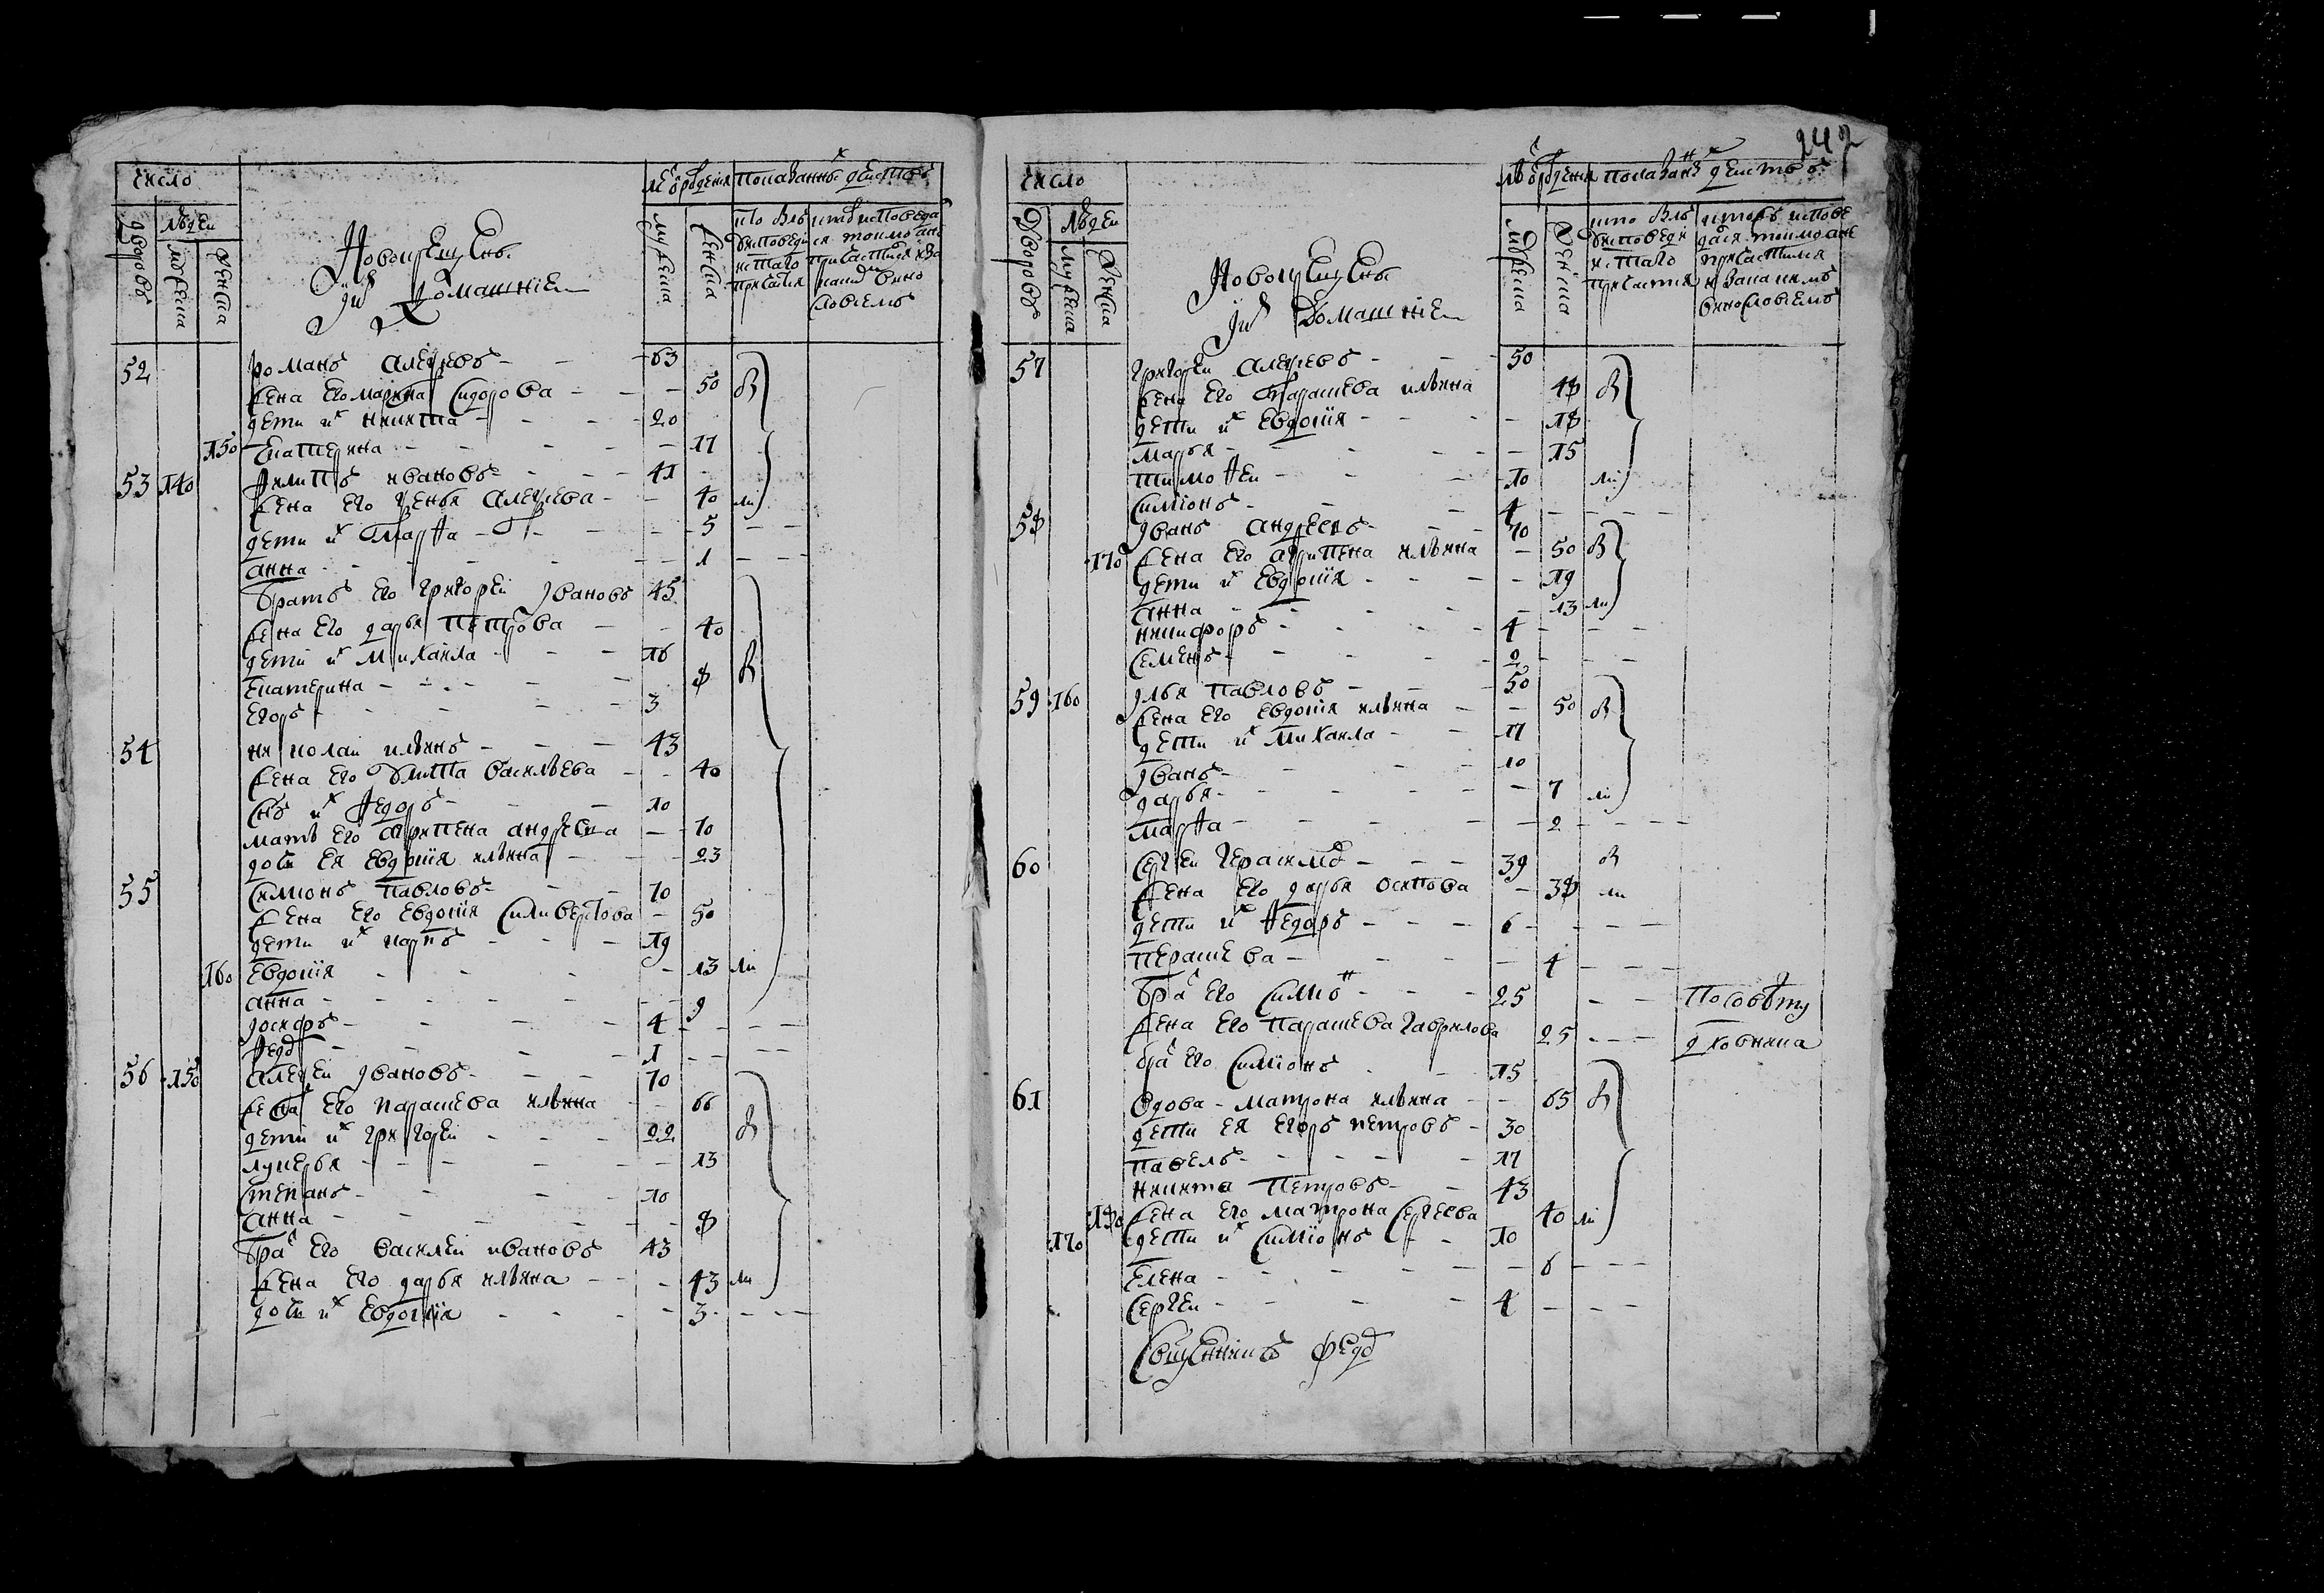 число
людеи
дворовъ
мужеска
женска
Новокрещены
и ихъ домашние
лѣ ѿ рождения
мужеска
женска
показанныхъ действъ
кто былъ у исповеди и святаго причастия
52 Романъ Алексеевъ - - 63
жена его Марина Сидорова - - - 50 былъ
дети их Никита - - - 20
150 Екатерина - - - - 17
53 140 Филипъ Ивановъ - - - 41
жена его Ксенья Алексеева - - 40 ли
дети их Марфа - - - 5 - -
Анна - - - - 1 - -
братъ его Григореи Ивановъ 45
жена его Дарья Петрова - - 40
дети их Михаила - - - 16
Екатерина - - - - 8
Егоръ - - - - 3
54 Николаи Ильинъ - - - 43
жена его Улита Васильева - - 40
снъ их Федоръ - - - 10
мать его Агрипена Андреева - 70
дочь ея Евдокия Ильина - - 23
55 Симионъ Павловъ - - 70
жена его Евдокия Силиверстова - 50
дети их Карпъ - - - 19
160 Евдокия - - - - 13 ли
Анна - - - - - 9
Иосифъ - - - - 4 - - -
Федо - - - - 1 - - -
56 150 Алексеи Ивановъ - - - 70
жена его Парашева Ильина - 66
дети их Григореи - - - 22
Лукерья - - - - 13
Степанъ - - - - 10
Анна - - - - - 8
бра его Василеи Ивановъ 43
жена его Дарья Ильина - - 43 ли
дочь их Евдокия - - - 3 - - -
242
число
людеи
дворовъ
мужеска
женска
Новокрещены
и ихъ домашние
лѣ ѿ рождения
мужеска
женска
показаны действъ
57 Григореи Алексеевъ - - 50
жена его Парашева Ильина 48
дети их Евдокия - - - 18
Марья - - - - 15
Тимофеи - - - - 10 ли
Симионъ - - - - 4 - - - -
58 Иванъ Андреевъ - - 70
170 жена его Агрипена Ильина - 50
дети их Евдокия - - - 19
Анна - - - - 13 ли
Никифоръ - - - - 4 - - -
Семенъ - - - - 2 - - -
59 160 Илья Павловъ - - - 50
жена его Евдокия Ильина - - 50
дети их Михаила - - 17
Иванъ - - - - 10
Дарья - - - - - 7 ли
Марфа - - - - - 2 - - - -
60 Сергеи Герасимо - - - 39
жена его Дарья Осипова - 38 ли
дети их Федоръ - - - 6 - - - -
Перашева - - - - 4 - - -
бра его Симио - - - 25 - - по совѣту
жена его Парашева Гаврилова 25 - - - духовника
бра его Симионъ - - 15
61 вдова - Матрона Ильина - - 65
дети ея Егоръ Петровъ - 30
Павелъ - - - - 17
Никита Петровъ - - 43
180 жена его Матрона Сергеева 40 ли
170 дети их Симионъ - - 10
Елена - - - - - 6 - - -
Сергеи - - - 4 - - -
Священникъ Федо